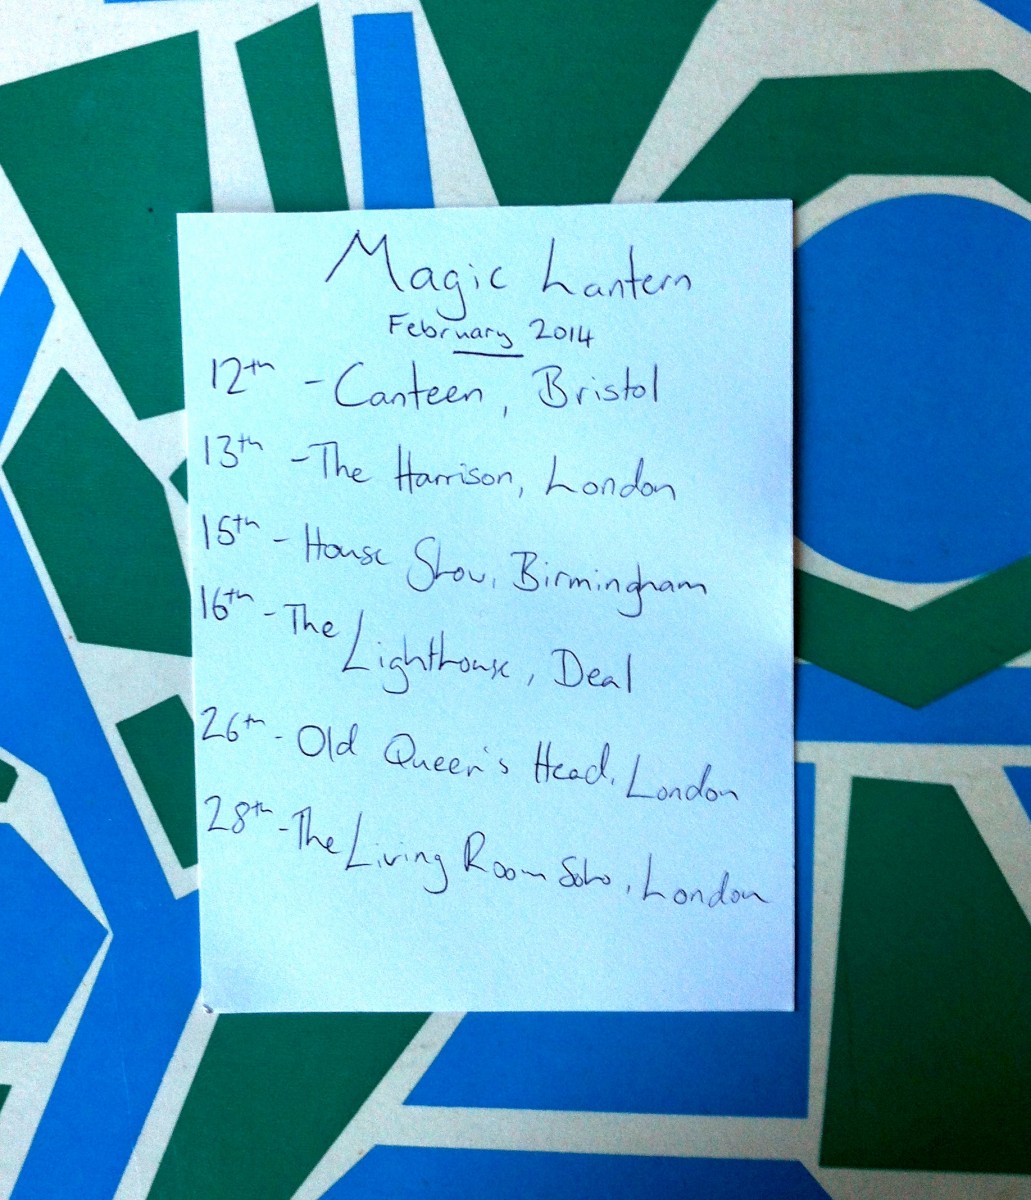 Magic Lantern
February 2014
12th - Canteen, Bristol
13th - The Harrison, London
15th - House Show, Birmingham
16th - The Lighthouse, Deal
26th - Old Queen's Head, London
28th - The Living Room Soho, London